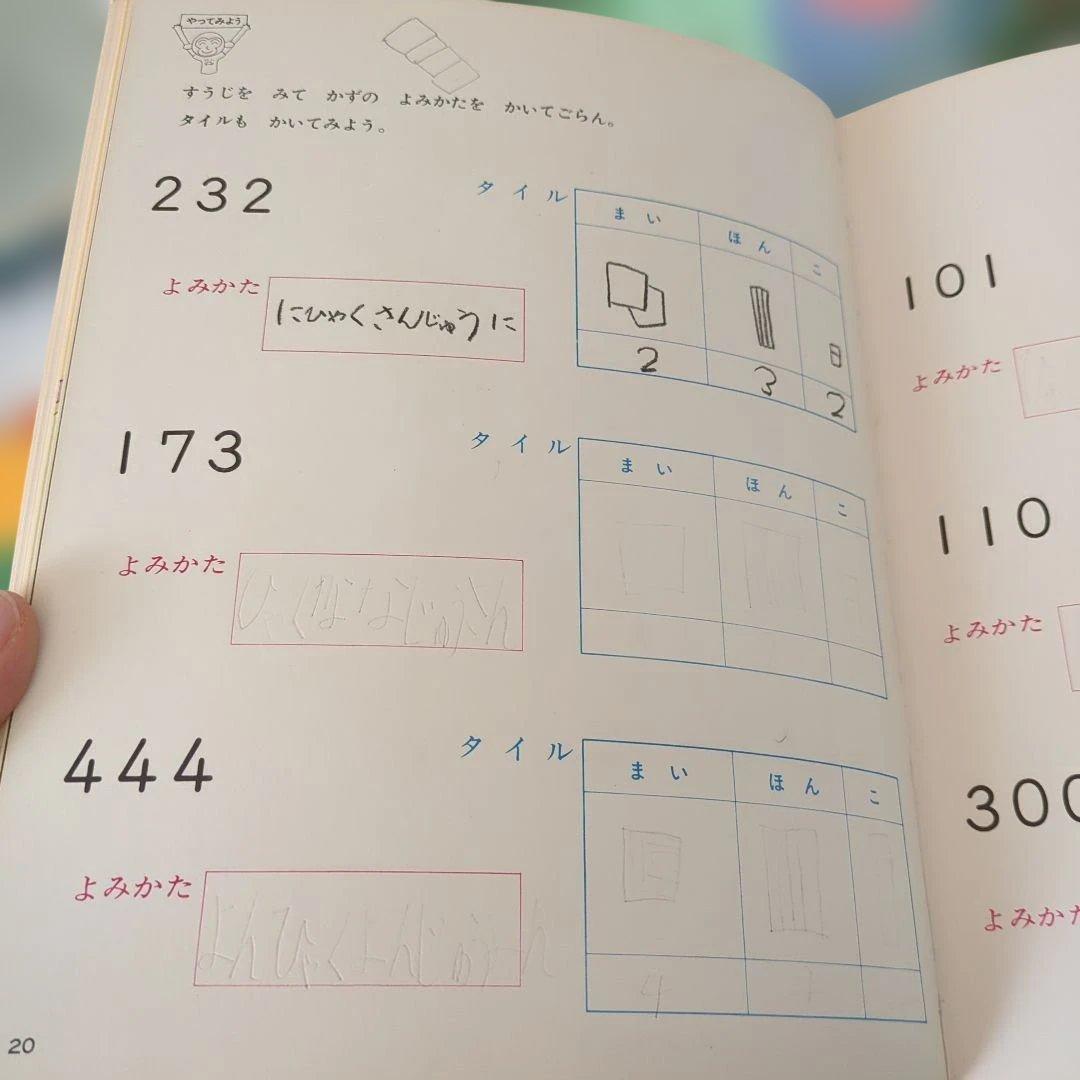 やってみよう
すうじを みて かずの よみかたを かいてごらん。
タイルも かいてみよう。
232
タイル
まい ほん こ
よみかた
にひゃくさんじゅうに
2 3 2
173
タイル
まい ほん こ
よみかた
ひゃくななじゅうさん
444
タイル
まい ほん こ
よみかた
よんひゃくよんじゅう
4
20
101
よみかた
110
よみかた
300
よみかた